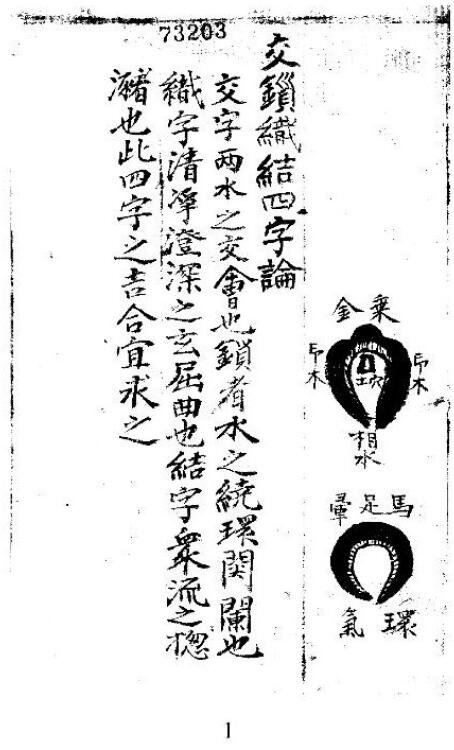 73203
乘金
印木
印木
相水
馬足暈
環氣
交鎖織結四字論
交字兩水之交會也鎖者水之繞環関闌也
織字清淨澄深之玄屈曲也結字衆流之揔
瀦也此四字之吉合宜求之
1